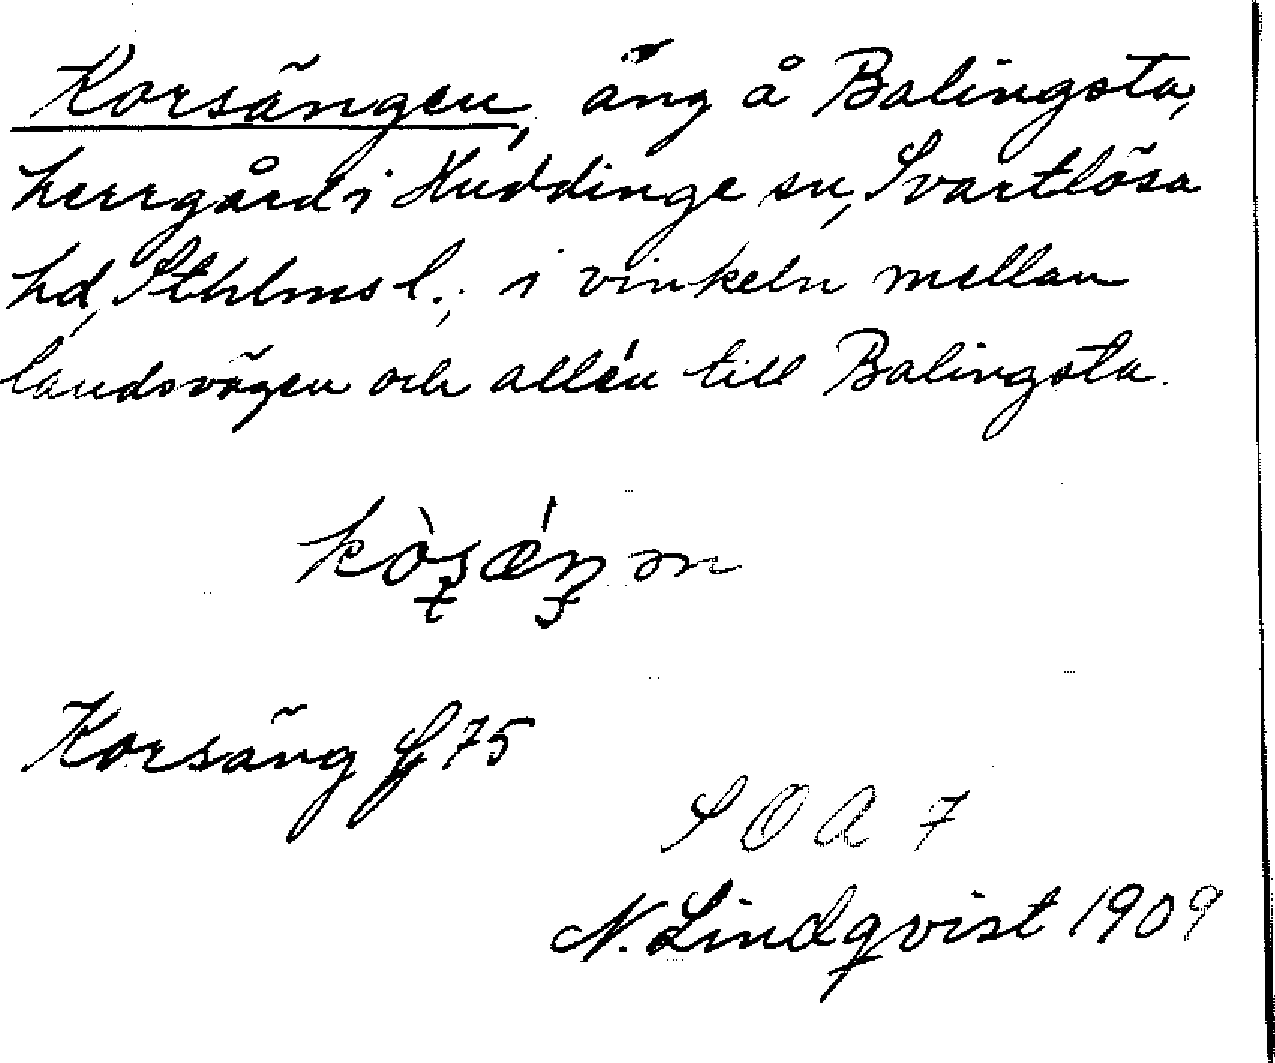 Korsängen, äng å Balingsta,
herrgård i Huddinge sn, Svartlösa
hd, Sthlms l.; i vinkeln mellan
landsvägen och allén till Balingsta.
Korsäng 75
SOA 7
N. Lindqvist 1909